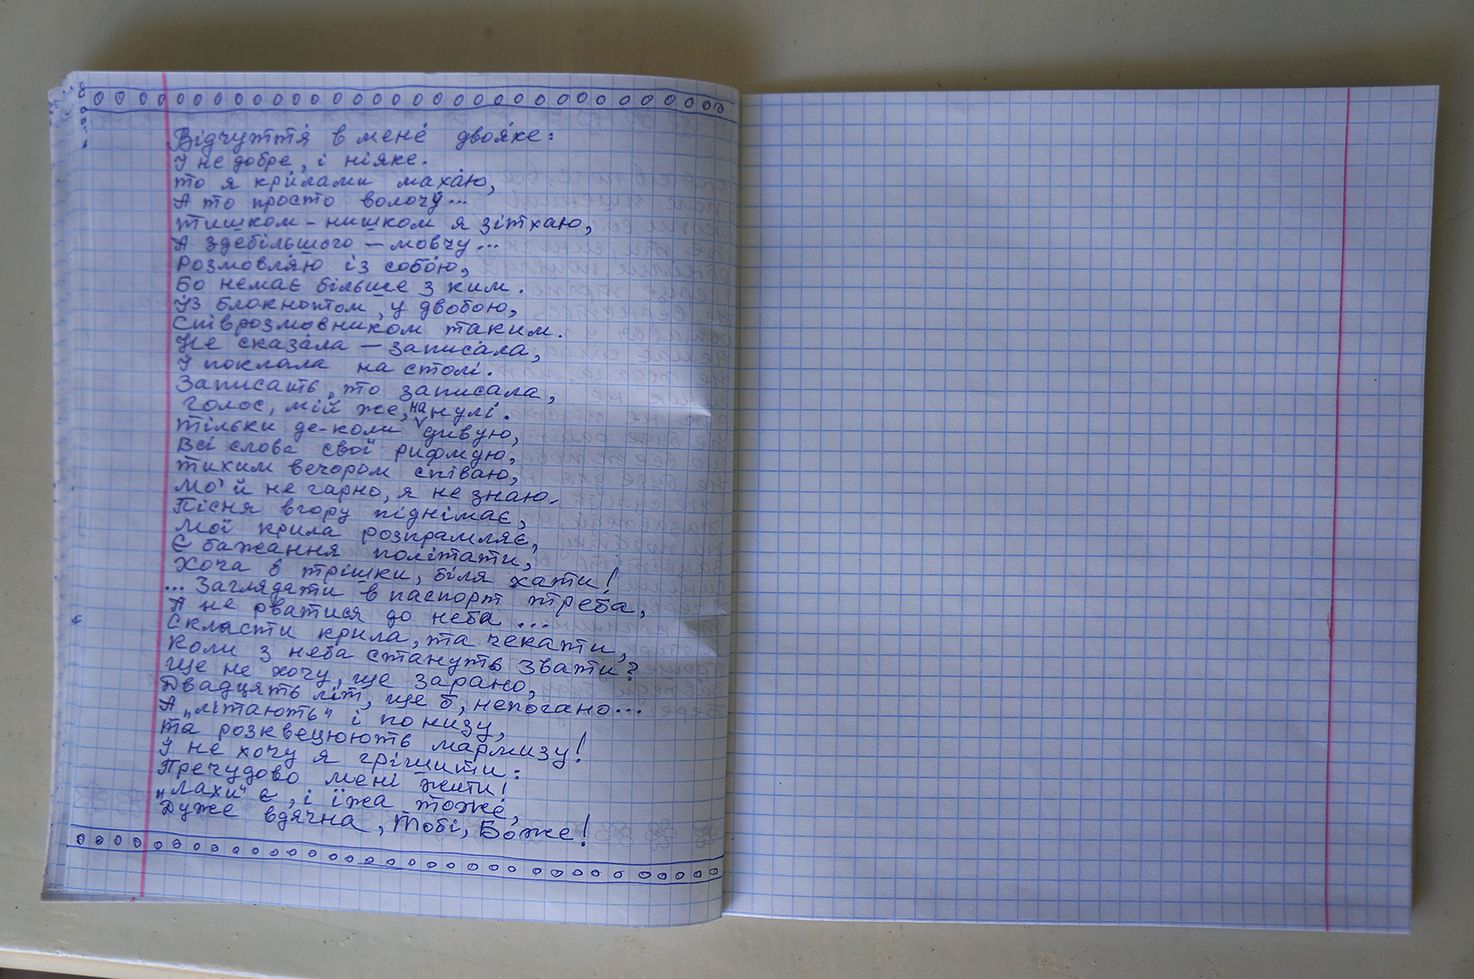 Відчуття в мене двояке:
І не добре, і ніяке.
То я крилами махаю,
А то просто волочу...
Тишком-нишком я зітхаю,
А здебільшого – мовчу...
Розмовляю із собою,
Бо немає більше з ким.
Із блокнотом, у двобою,
Співрозмовником таким.
Не сказала – записала,
І поклала на столі.
Записать, то записала,
Голос, мій же, на нулі.
Тільки де-коли дивую,
Всі слова свої римфую,
Тихим вечором співаю,
Мо' й не гарно, я не знаю.
Пісня вгору піднімає,
Мої крила розпрамляє,
Є бажання політати,
Хоча б трішки, біля хати!
... Заглядати в паспорт треба,
А не рватися до неба...
Скласти крила, та чекати,
Коли з неба стануть звати?
Ще не хочу, ще зарано,
Двадцять літ, ще б, непогано...
А „літають" і по низу,
Та розквецюють мармизу!
І не хочу я грішити:
Пречудово мені жити!
„Лахи" є, і їжа тоже,
Дуже вдячна, Тобі, Боже!